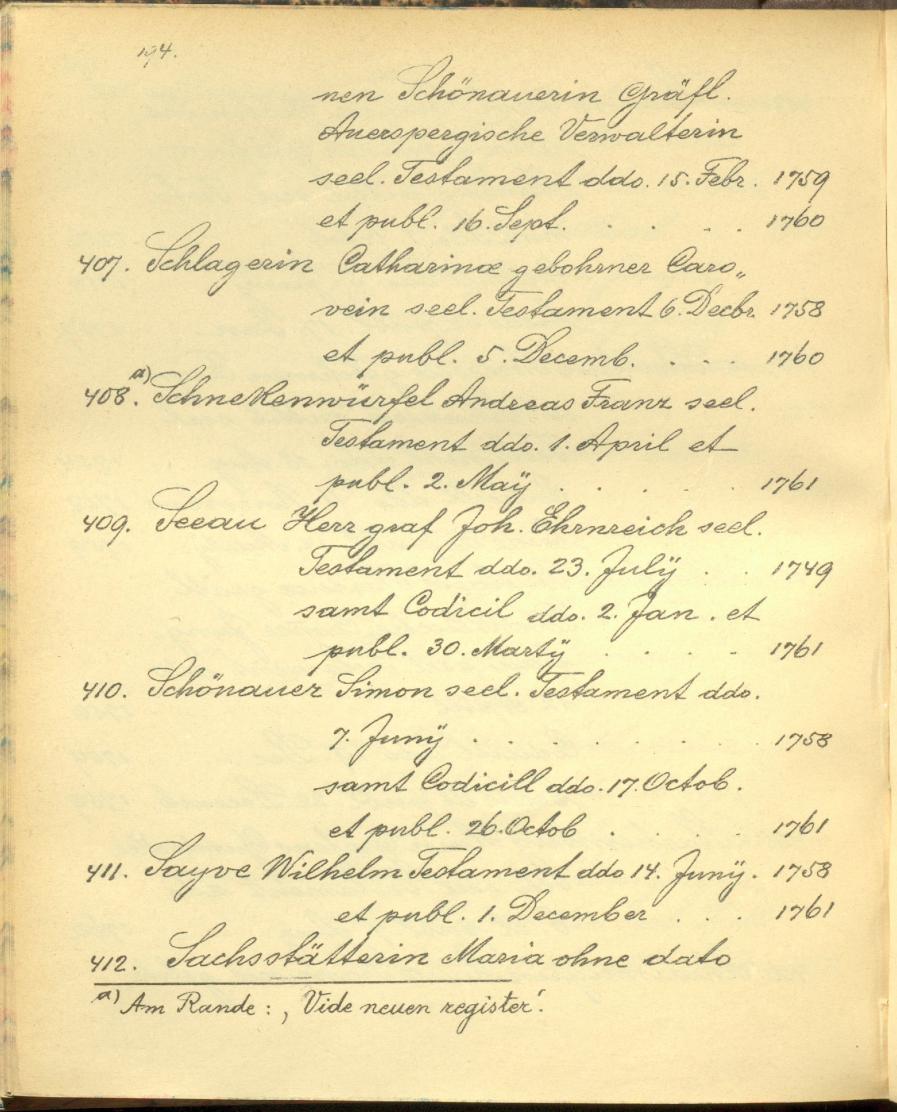 194.
nen Schönauerin Gräfl.
Auerspergische Verwalterin
seel. Testament ddo. 15. Febr. 1759
et publ. 16. Sept. . . . . 1760
407. Schlagerin Catharinæ gebohrner Caro„
vein seel. Testament 6. Decbr. 1758
et publ. 5. Decemb. . . . 1760
408. a) Schnekenwürfel Andreas Franz seel.
Testament ddo. 1. April et
publ. 2. Maÿ . . . . . 1761
409. Seeau Herr graf Joh. Ehrnreich seel.
Testament ddo. 23. Julÿ . . 1749
samt Codicil ddo. 2. Jan. et
publ. 30. Martÿ . . . . 1761
410. Schönauer Simon seel. Testament ddo.
7. Junÿ . . . . . . . . 1758
samt Codicill ddo. 17. Octob.
et publ. 26. Octob . . . . 1761
411. Sayve Wilhelm Testament ddo 14. Junÿ. 1758
et publ. 1. December . . . 1761
412. Sachsstätterin Maria ohne dato
a) Am Rande: ‚Vide neuen register‘.